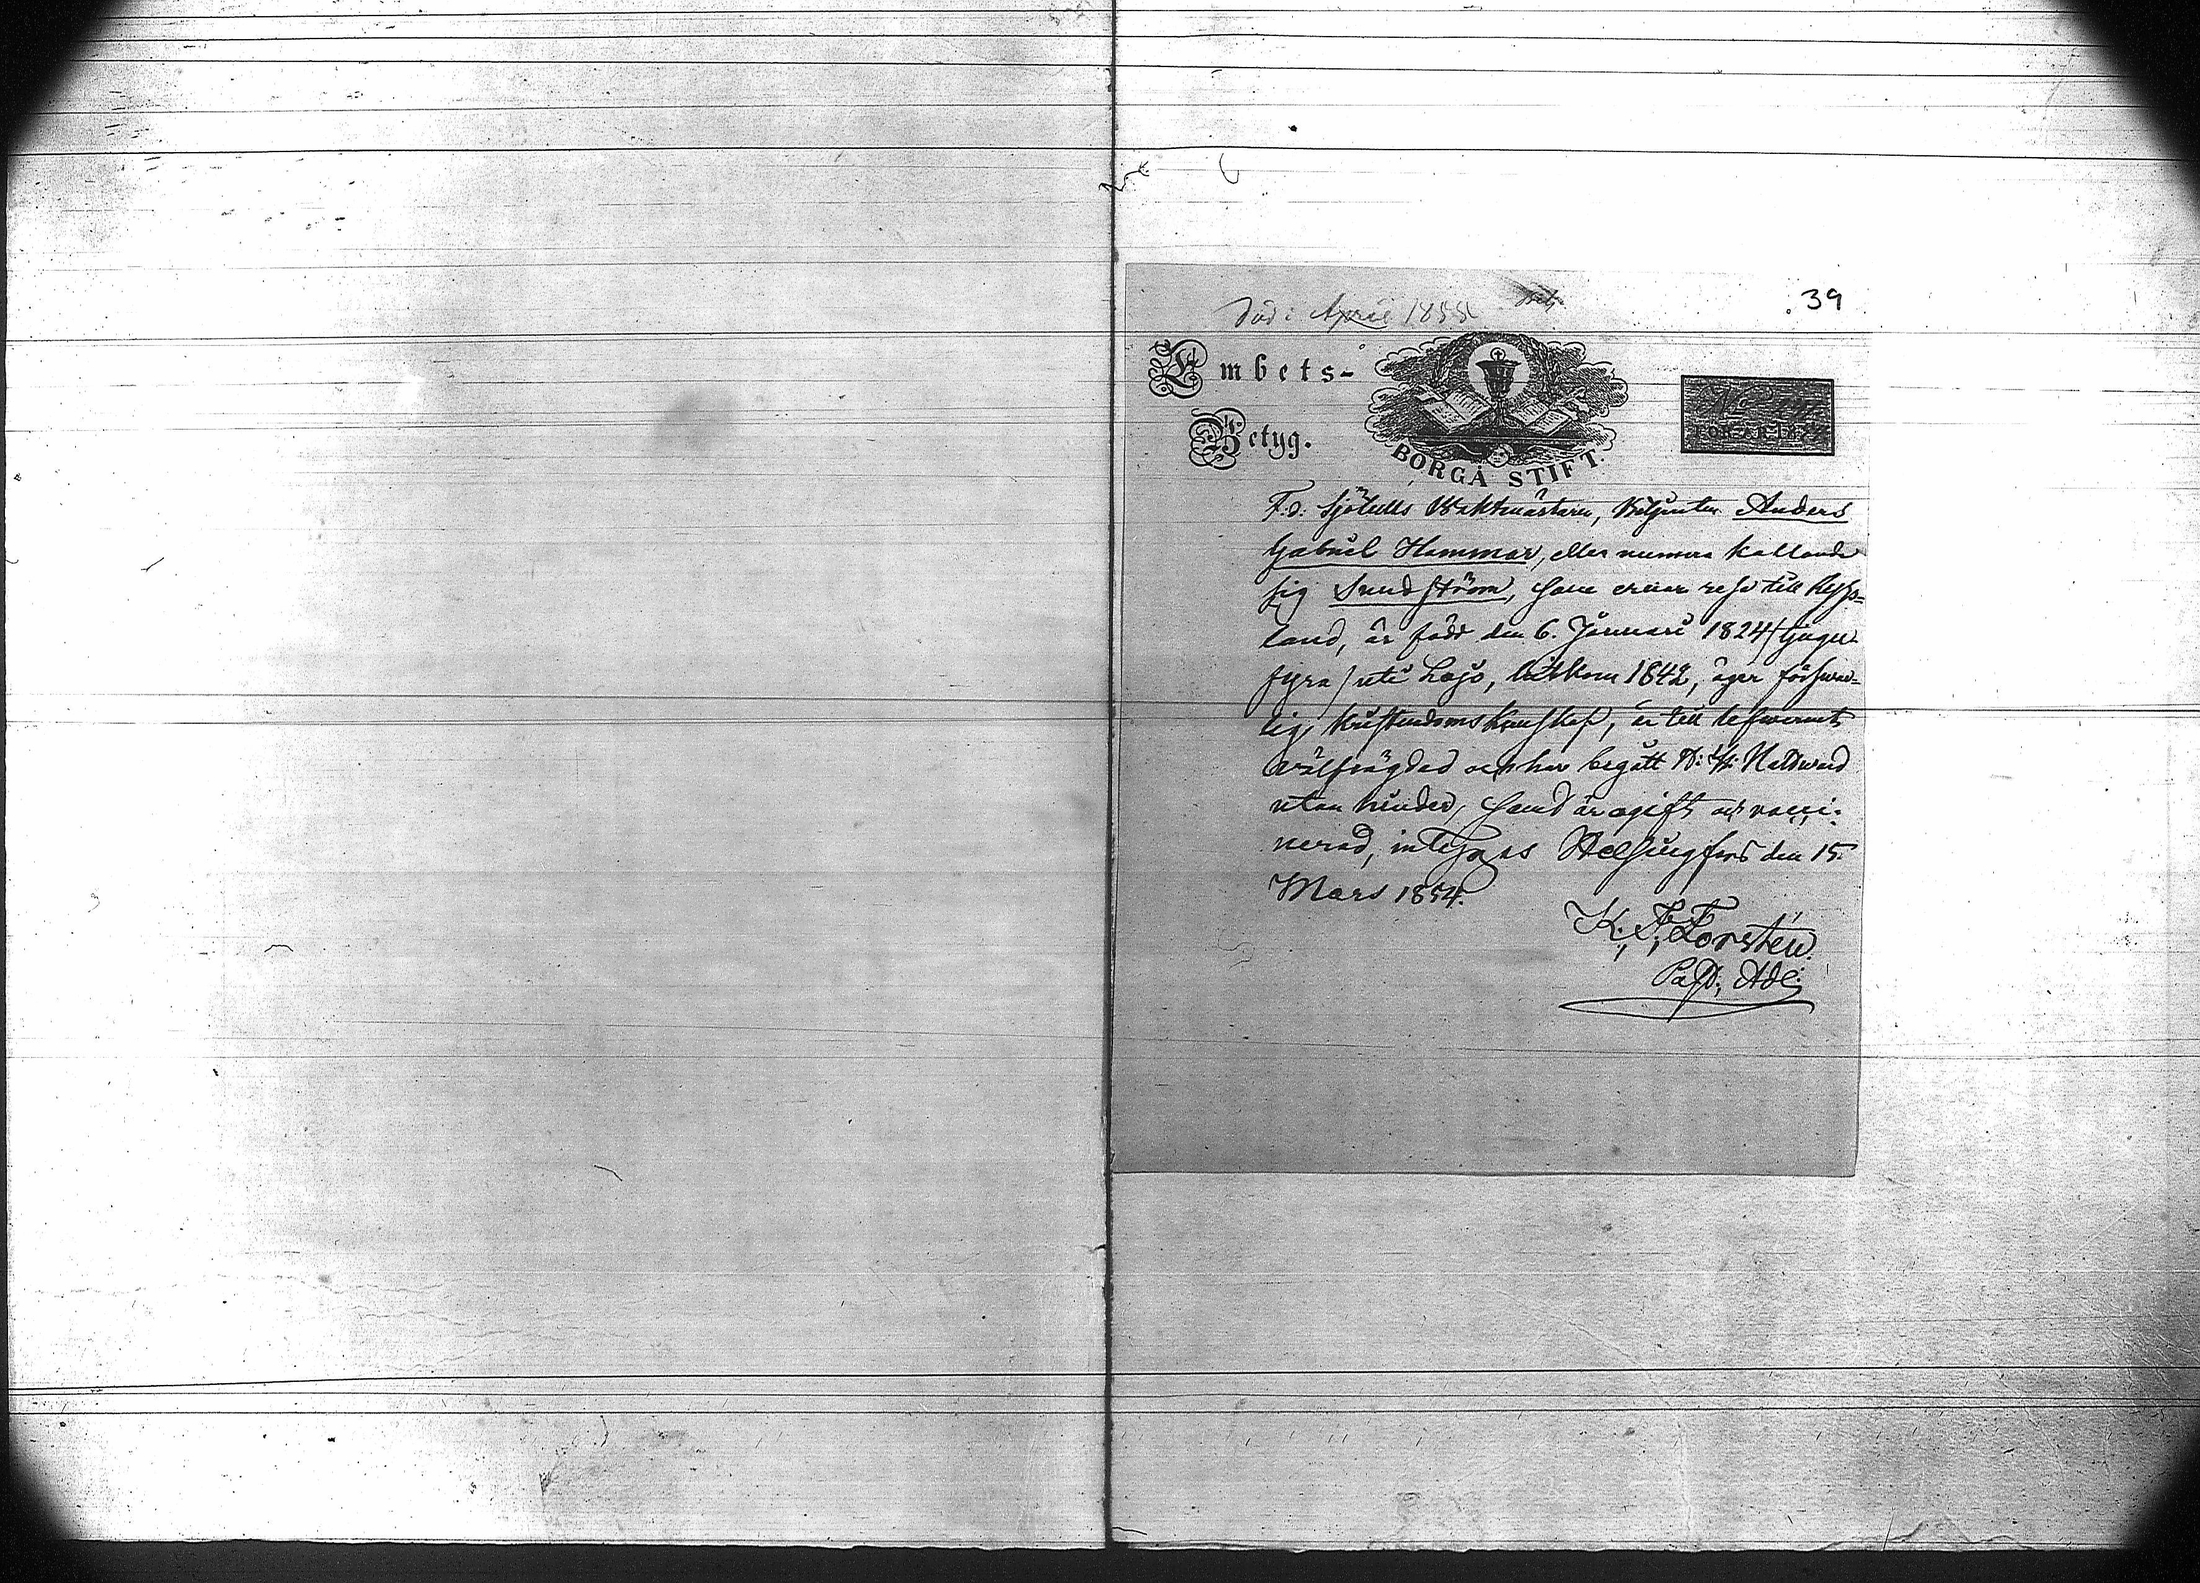 39
död i April 1855
Embets-
Betyg.
BORGÅ STIFT.
F. d. Sjötulls Waktmästaren, Anders
Gabriel Hammar, eller numera kallande
sig Sundström, som ernar resa till Ryss=
land, är född den 6. Januari 1824 /tjugu
fyra/ uti Lojo, hitkom 1842, äger försvar=
lig kristendomskunskap, är till lefvernet
välfrägdad och har begått H: H: Nattward
utan hinder, samt är ogift och vacci-
nerad, intygas Helsingfors den 15.
Mars 1854.
K. F. Forstén.
Past: Adj: